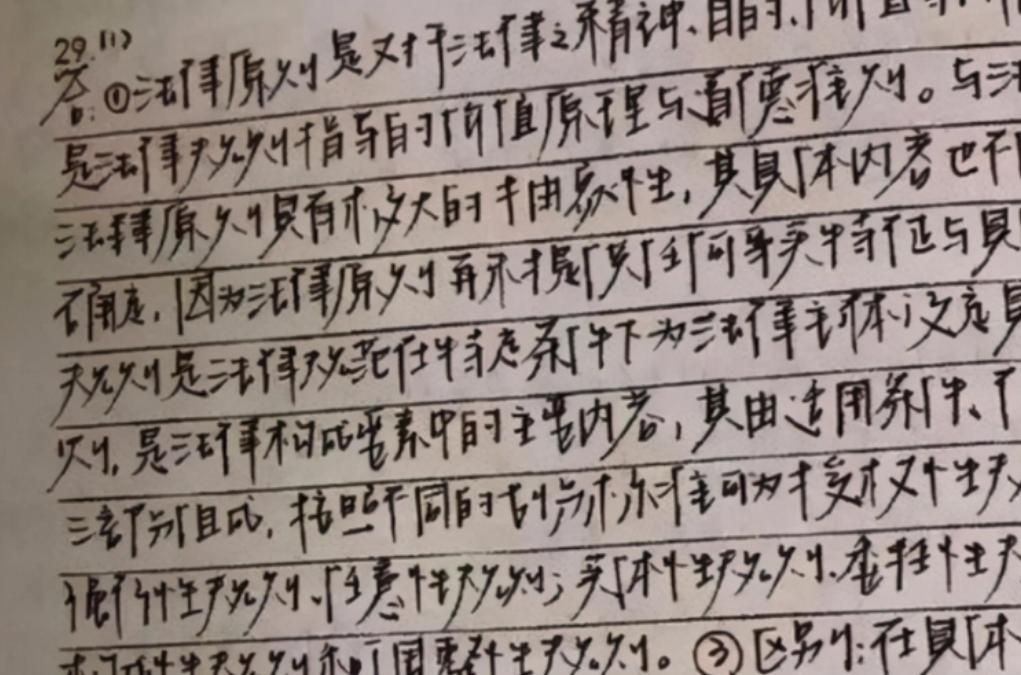 29.(1)
答:①法律原则是对于法律之精神、目的、价值
是法律规则指导目的价值原理与道德准则。与法
法律原则具有极大的抽象性,其具体内容也不
确定,因为法律原则再不提供任何事实特征与具
规则是法律规范在特定条件下为法律主体设定具
则,是法律构成要素中的主要内容,其由适用条件、
三部分组成,按照不同的划分标准可为授权性规
强行性规则、任意性规则;实体性规则、委任性规
和 性规则。③区别:在具体